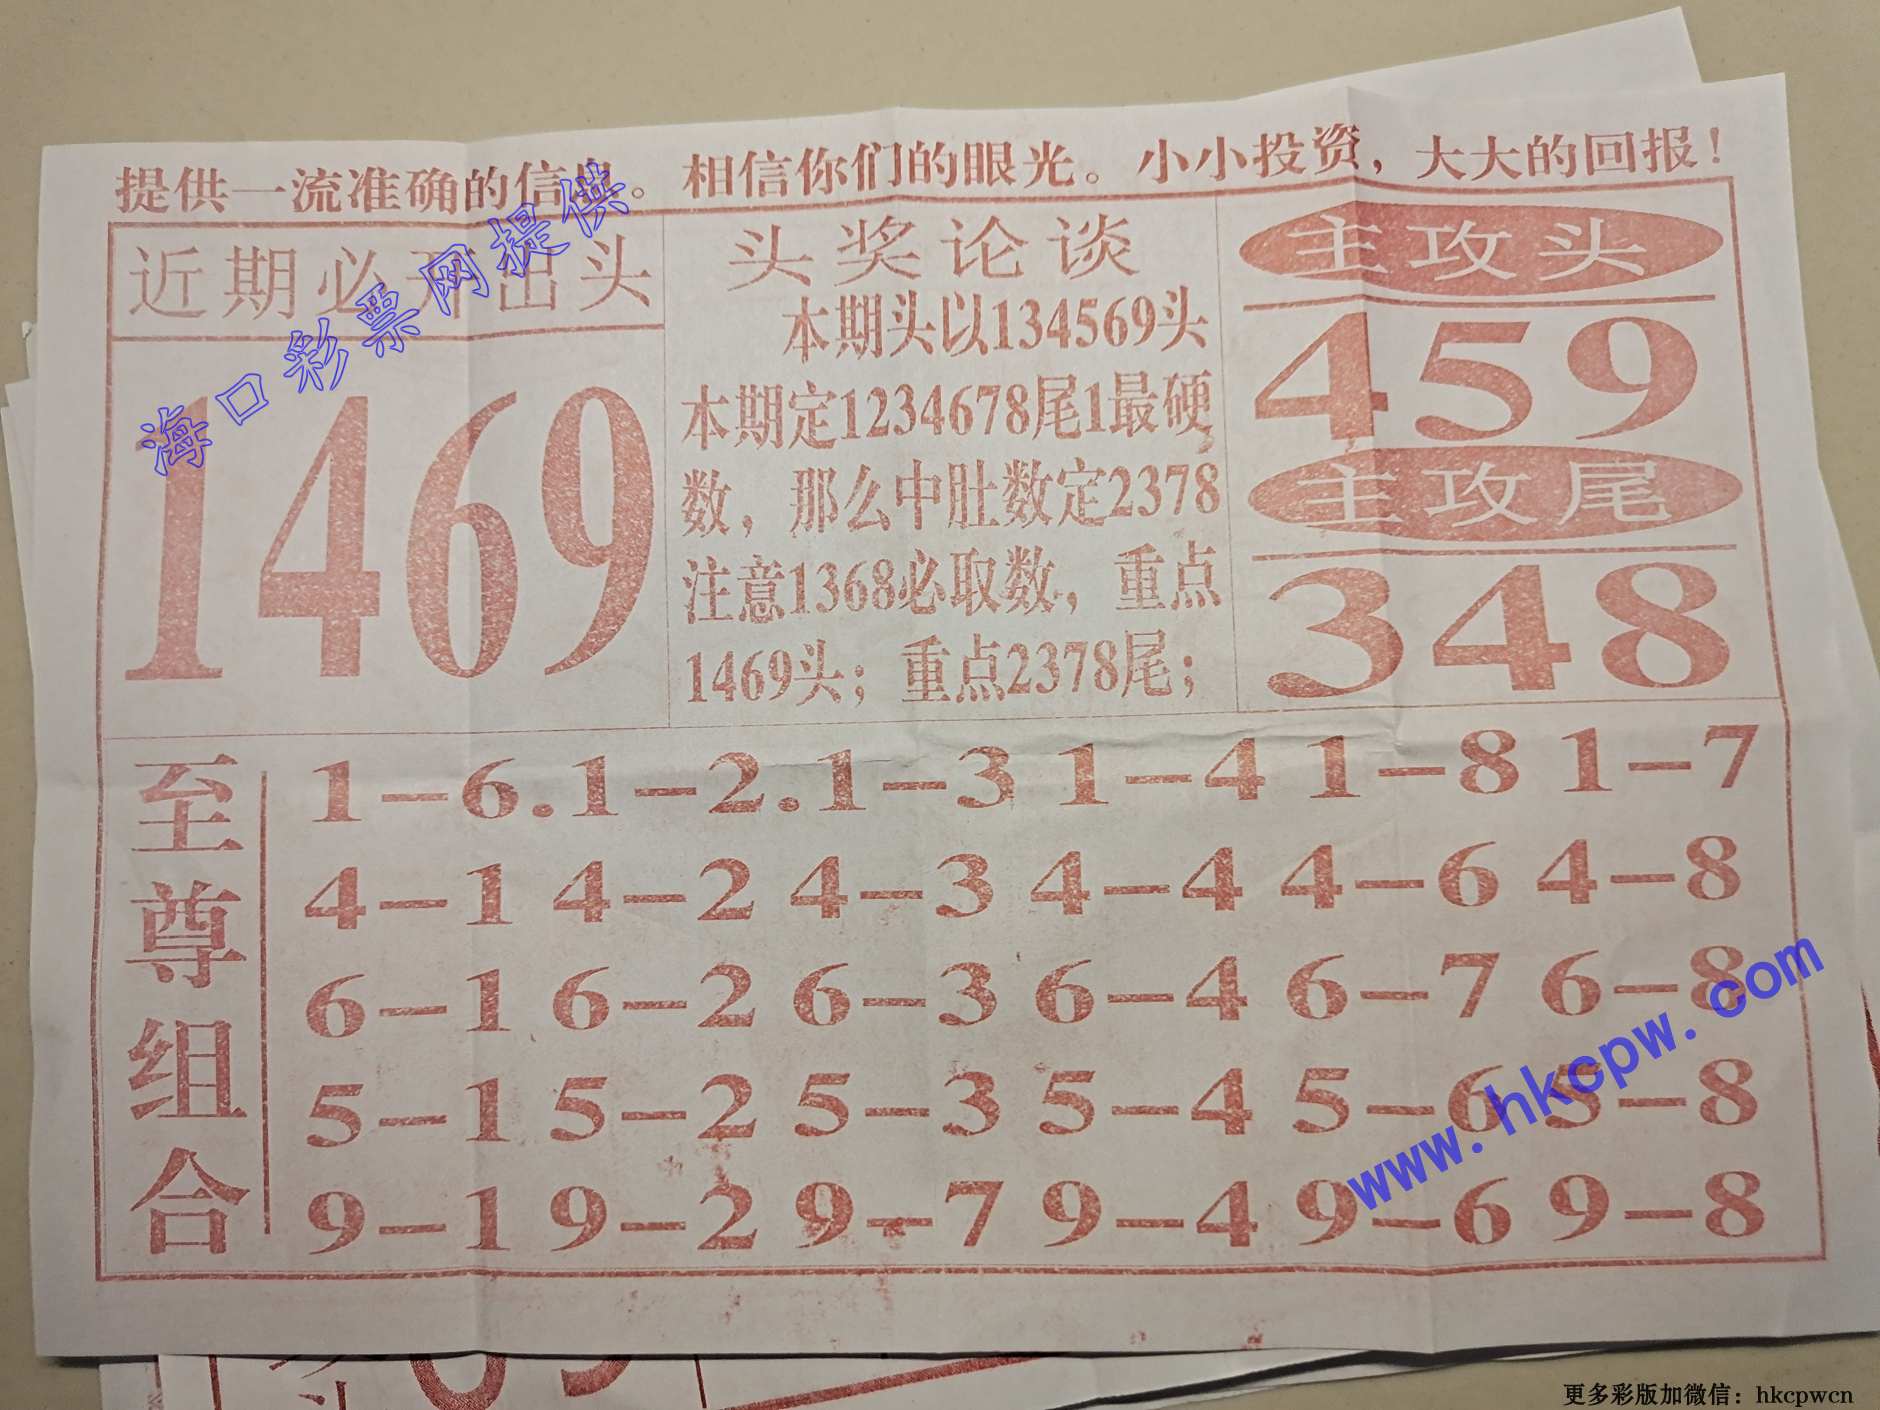 提供一流准确的信息。相信你们的眼光。小小投资，大大的回报！
近期必开出头
1469
头奖论谈
本期头以134569头
本期定1234678尾1最硬
数，那么中肚数定2378
注意1368必取数，重点
1469头；重点2378尾；
主攻头
459
主攻尾
348
至尊组合
1-6.1-2.1-3 1-4 1-8 1-7
4-1 4-2 4-3 4-4 4-6 4-8
6-1 6-2 6-3 6-4 6-7 6-8
5-1 5-2 5-3 5-4 5-6 5-8
9-1 9-2 9-7 9-4 9-6 9-8
海口彩票网提供
www.hkcpw.com
更多彩版加微信：hkcpwcn